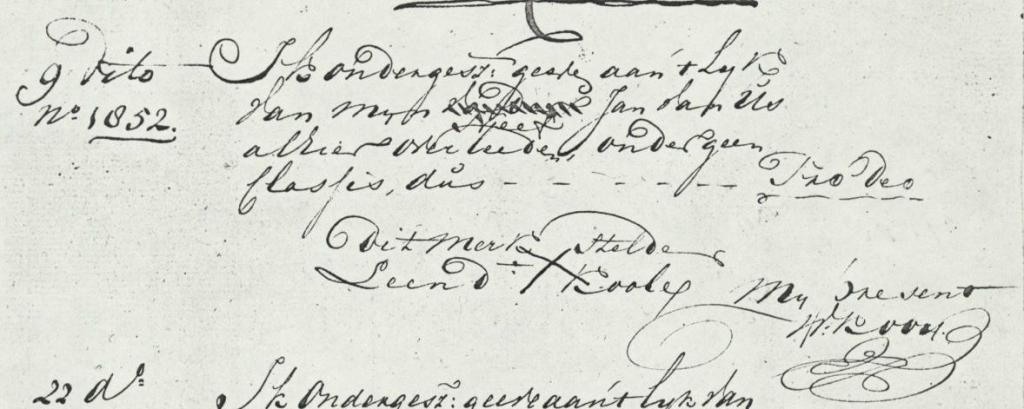 9 dito
N.º 1852.
Ik ondergesz: geeve aan't Lyk
van myn Neef Jan van Us
alhier overleeden, onder geen
Classis, dus - - - - - - Pro Deo
Dit merk X stelde
Leend:t Kooley
My present
22 d:º
Ik Ondergesz: geeve aan't Lyk van